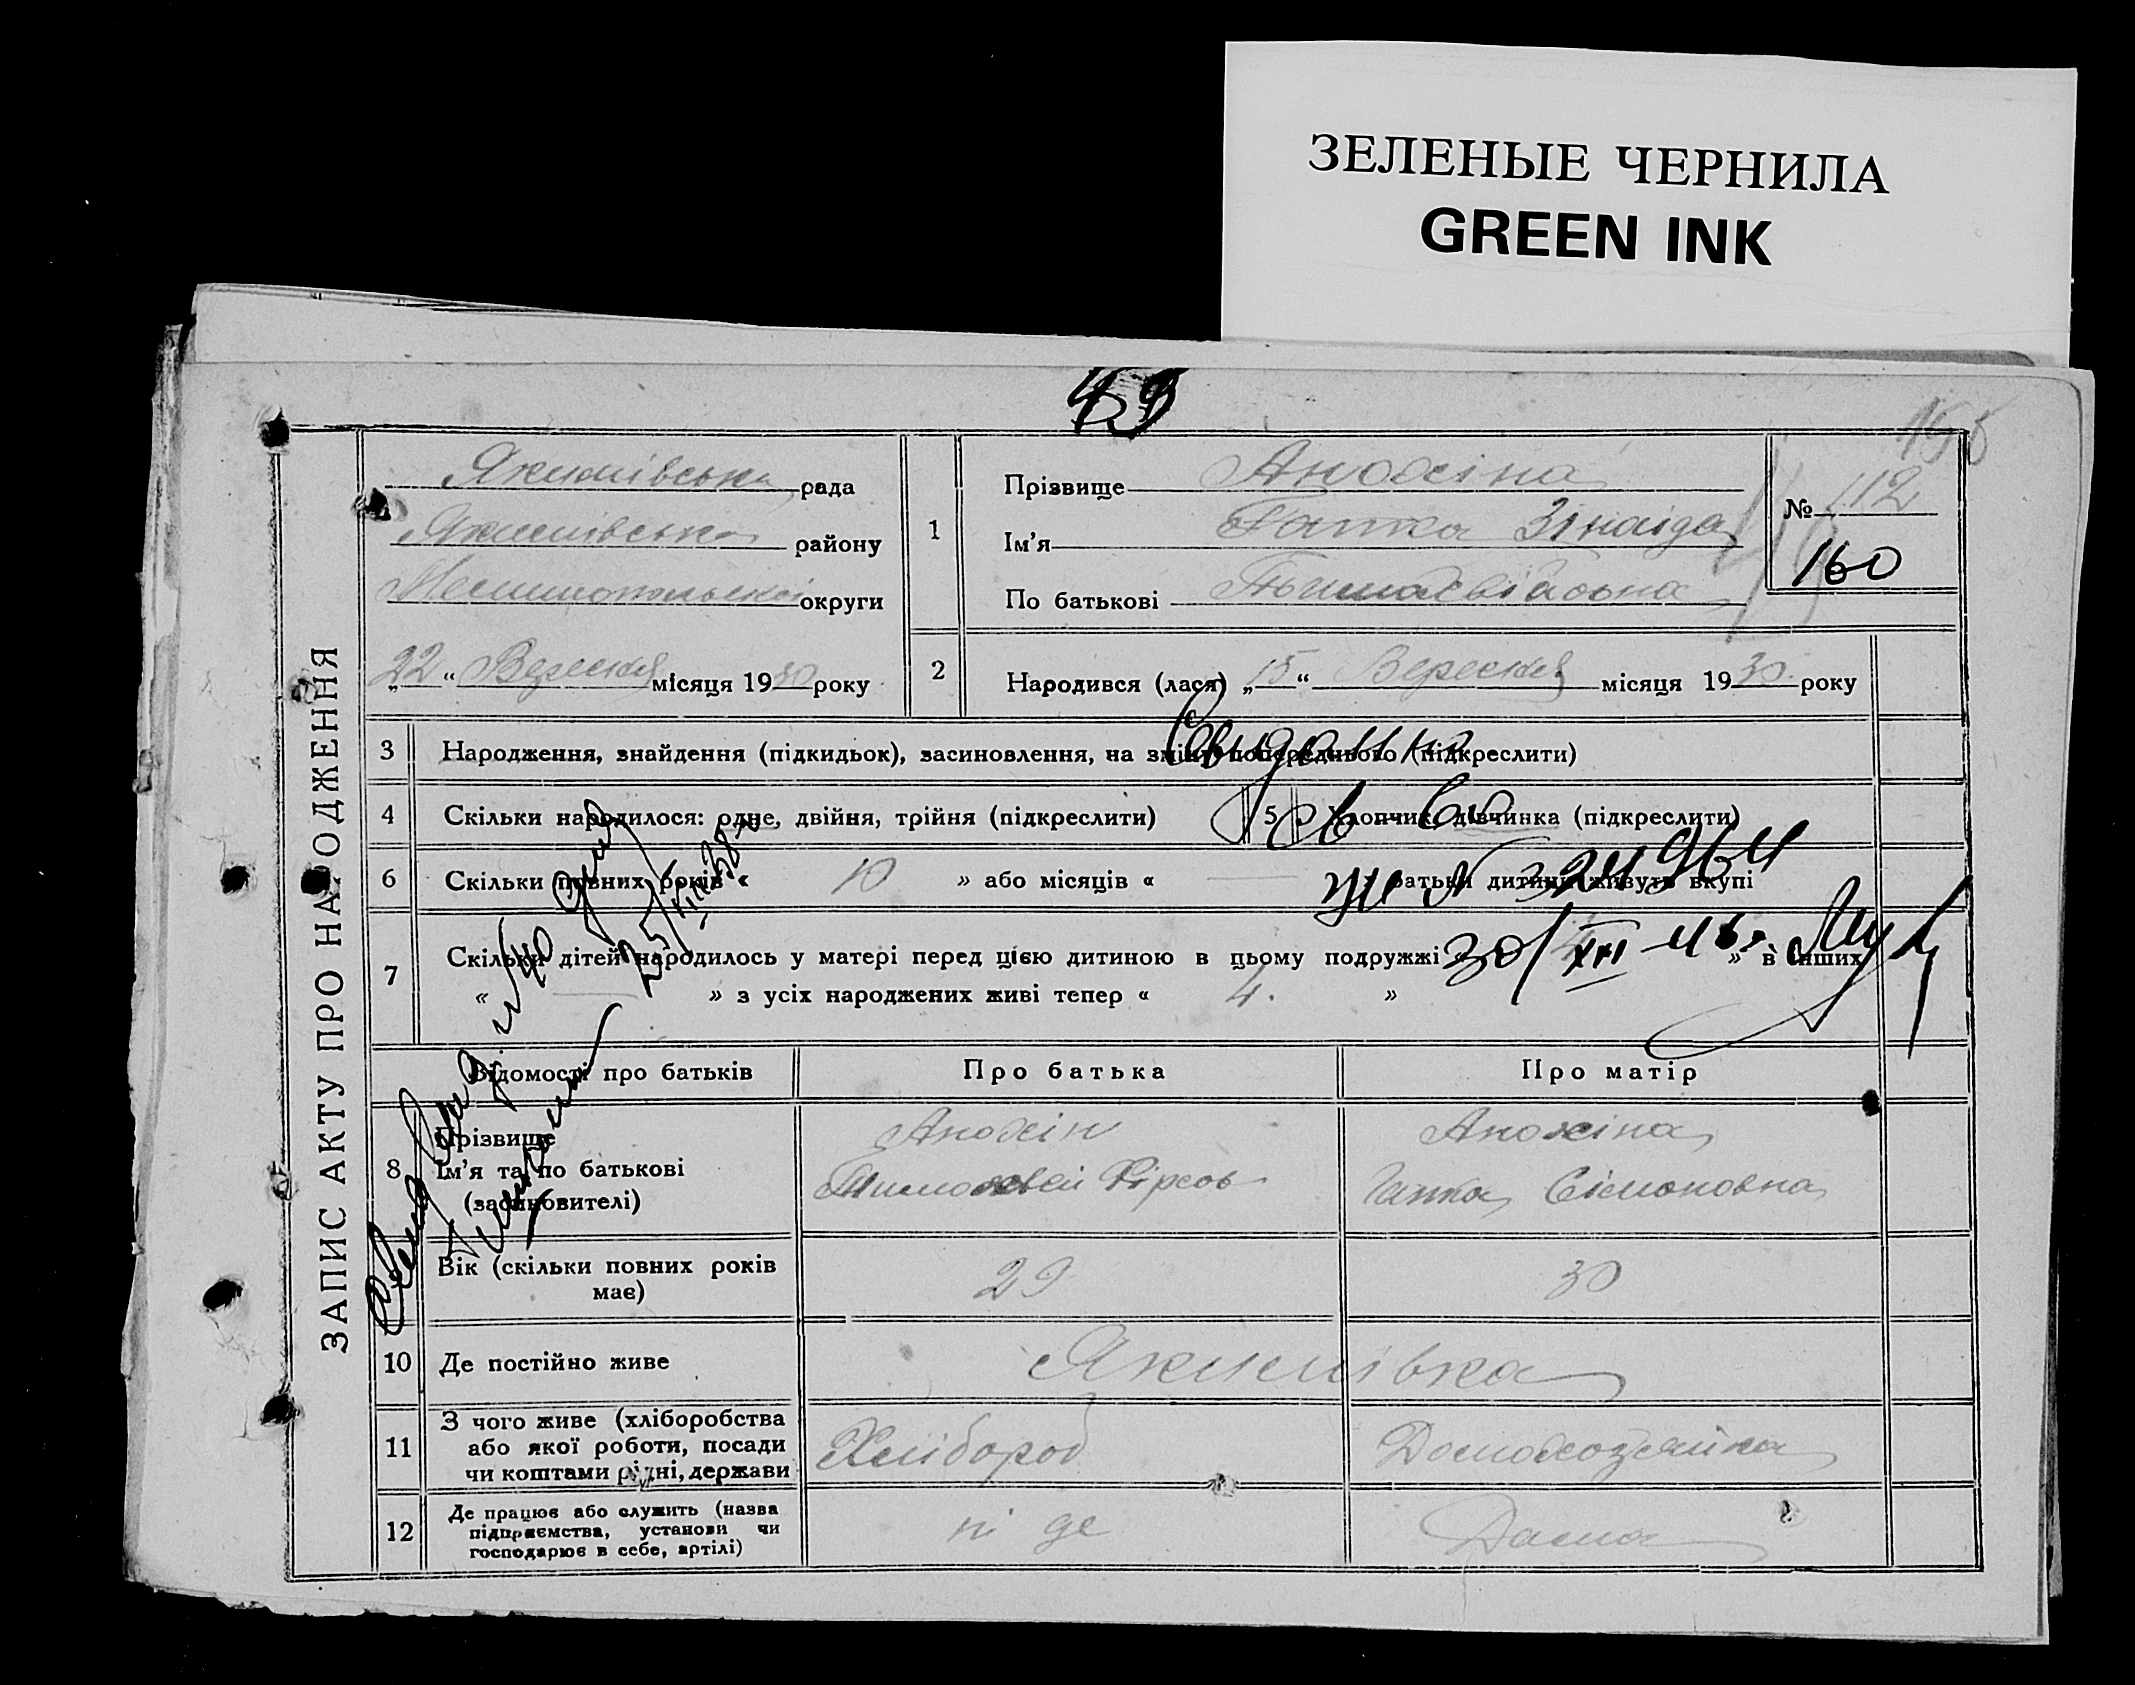 ЗЕЛЕНЫЕ ЧЕРНИЛА
GREEN INK
159
ЗАПИС АКТУ ПРО НАРОДЖЕННЯ
Якимівська рада
Якимівська району
округи
„22“ Вересня місяця 1930 року
1
Прізвище Анохіна
Ім'я Ганка Зінаїда
По батькові
№ 112
160
2
Народився (лася) „15“ Вересня місяця 1930 року
3 Народження, знайдення (підкидьок), засиновлення, на зміну попереднього (підкреслити)
4 Скільки народилося: одне, двійня, трійня (підкреслити)
5 Хлопчик, дівчинка (підкреслити)
6 Скільки повних років « 10 » або місяців « — » батьки дитини живуть вкупі
7 Скільки дітей народилось у матері перед цією дитиною в цьому подружжі « » в інших
« — » з усіх народжених живі тепер « 4. »
30/XII
Відомості про батьків
Про батька
Про матір
8 Прізвище
Ім'я та по батькові
(засиновителі)
Анохін
Тимофей Фірсов
Анохіна
Ганка Сімоновна
Вік (скільки повних років має)
29
30
10 Де постійно живе
Якимівка
11 З чого живе (хліборобства
або якої роботи, посади
чи коштами рідні, держави
Хлібороб
Домохозяйка
12 Де працює або служить (назва
підприємства, установи чи
господарює в себе, артілі)
ні де
Дома